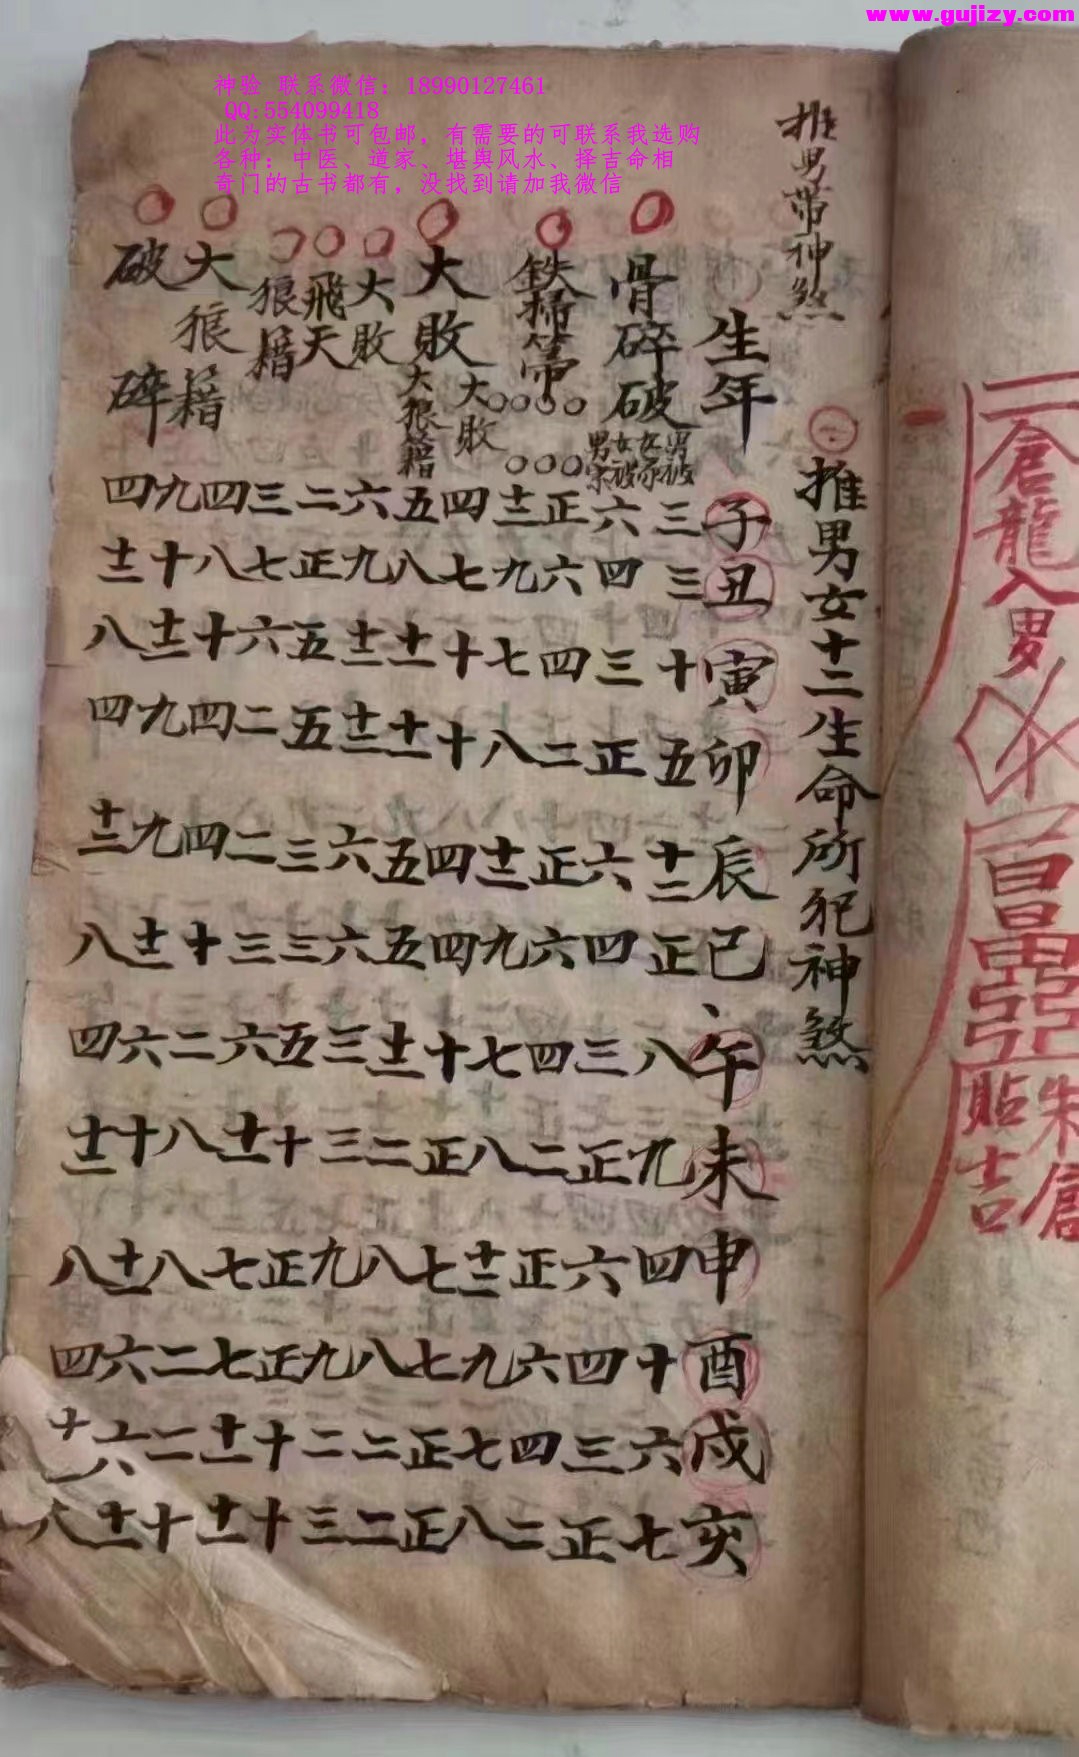 www.gujizy.com
神验 联系微信：18990127461
QQ:554099418
此为实体书可包邮，有需要的可联系我选购
各种：中医、道家、堪舆风水、择吉命相
奇门的古书都有，没找到请加我微信
推男带神煞
推男女十二生命所犯神煞
生年
骨碎破
男破
女家
女破
男家
鉄掃箒
大敗
大敗
大狼籍
大敗
飛天
狼籍
大狼籍
破碎
子三六正十二四五六二三四九四
丑三四六九七八九正七八十十二
寅十三四七十十一十二五六十十一八
卯五正二八十十一十二五二四九四
辰十二六正十二四五六三二四九十二
巳正四六九四五六三三十十一八
午八三四七十十一三五六二六四
未九正二八正二三十十一八十十二
申四六正十二七八九正七八十一八
酉十四六九七八九正七二六四
戌六三四七正二二十十一二六十一
亥七正二八正二三十十一十十一八
一倉龍入
男
昌
貼吉
朱